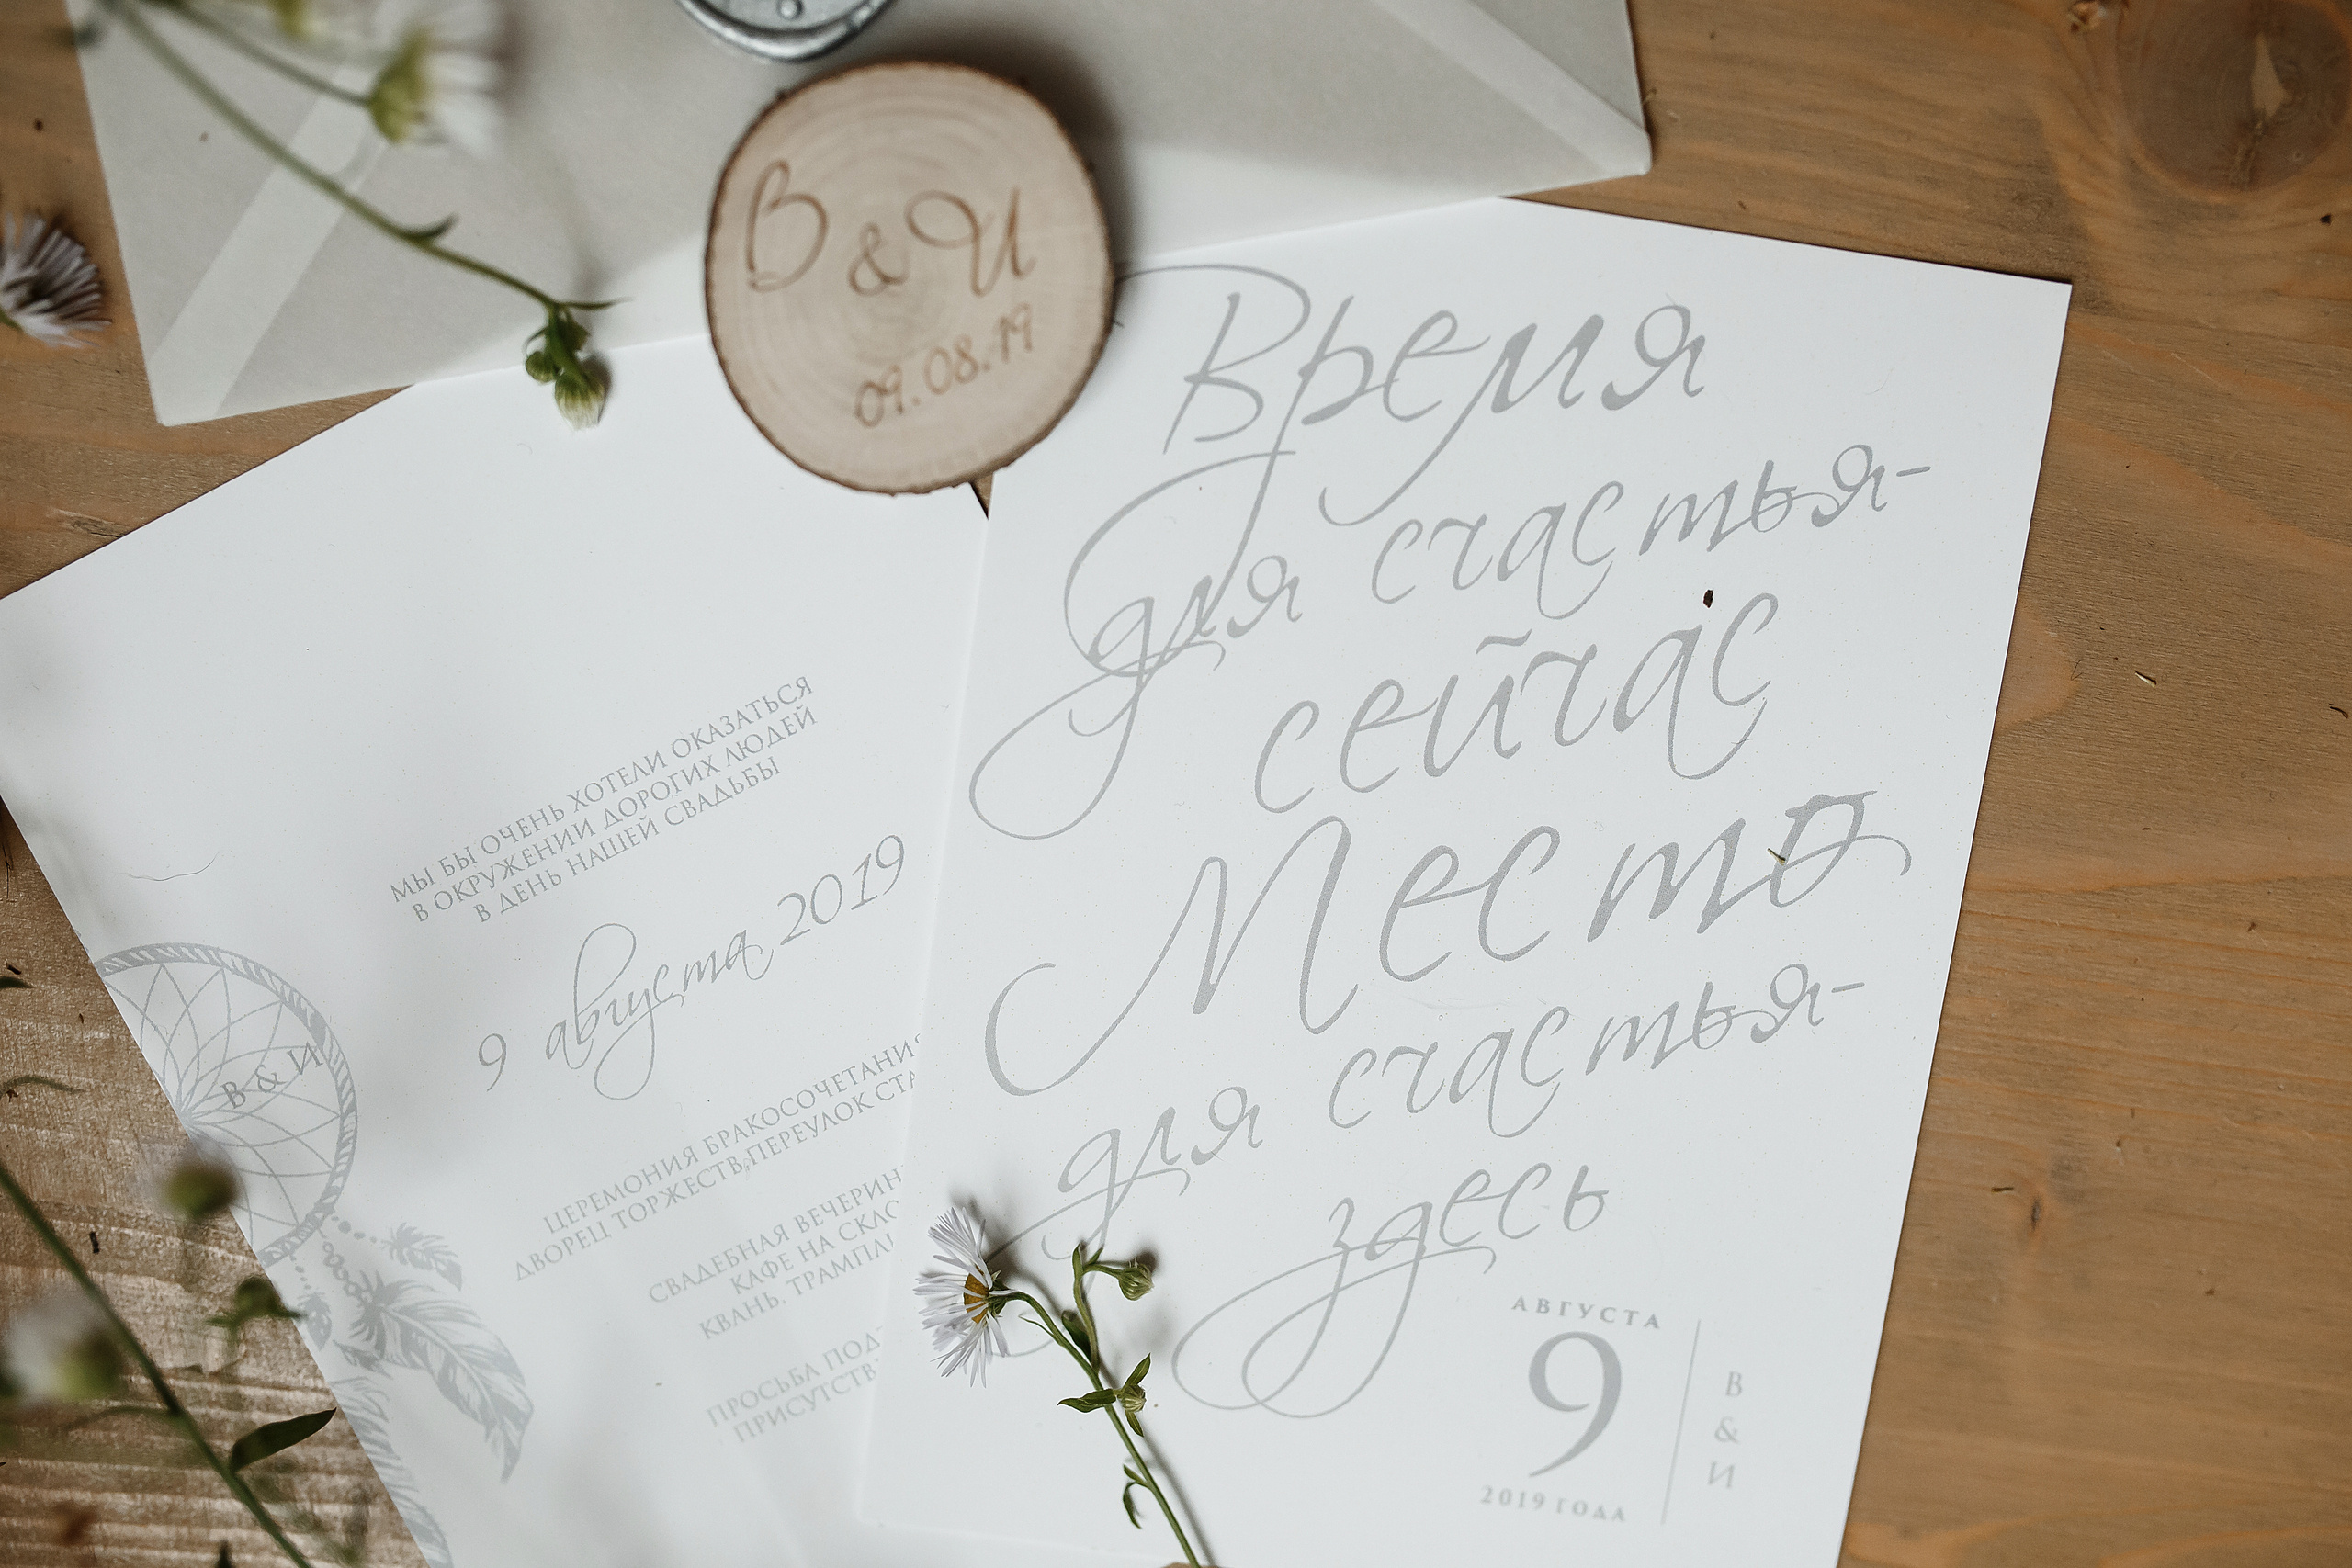 В & И
09.08.19
МЫ БЫ ОЧЕНЬ ХОТЕЛИ ОКАЗАТЬСЯ
В ОКРУЖЕНИИ ДОРОГИХ ЛЮДЕЙ
В ДЕНЬ НАШЕЙ СВАДЬБЫ
9 августа 2019
В & И
ЦЕРЕМОНИЯ БРАКОСОЧЕТАНИЯ
ДВОРЕЦ ТОРЖЕСТВ,ПЕРЕУЛОК СТА
СВАДЕБНАЯ ВЕЧЕРИН
КАФЕ НА СКЛО
КВАНЬ, ТРАМПЛ
ПРОСЬБА ПОД
ПРИСУТСТВ
Время
для счастья-
сейчас
Место
для счастья-
здесь
АВГУСТА
9
2019 ГОДА
В
&
И